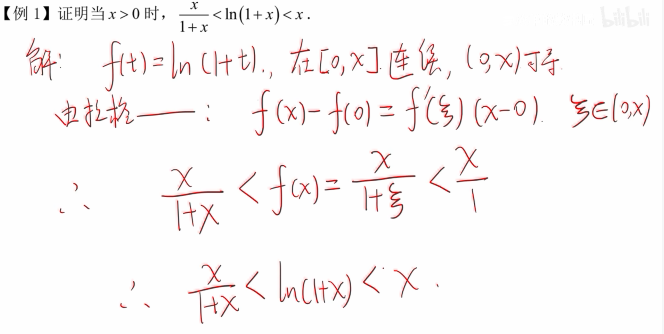 【例 1】证明当 x > 0 时，x/(1+x) < ln(1+x) < x .
解: f(t) = ln(1+t). , 在 [0, x] 连续, (0, x) 可导
由拉格—— : f(x) - f(0) = f'(ξ) (x-0). ξ∈(0, x)
∴ x/(1+x) < f(x) = x/(1+ξ) < x/1
∴ x/(1+x) < ln(1+x) < x .